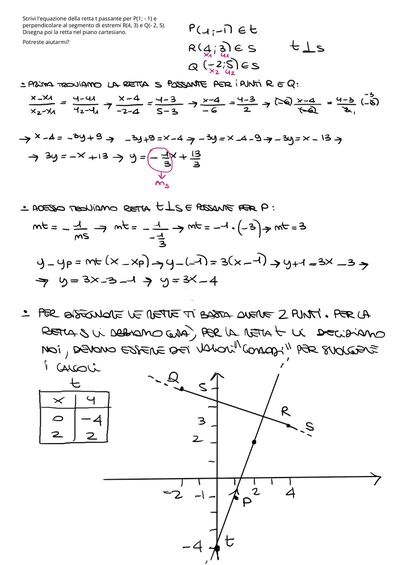 Scrivi l'equazione della retta t passante per P(1; - 1) e
perpendicolare al segmento di estremi R(4, 3) e Q(- 2, 5).
Disegna poi la retta nel piano cartesiano.
Potreste aiutarmi?
P(1;-1) ∈ t
R(4;3) ∈ S t⊥s
x₁ y₁
Q(-2;5) ∈ S
x₂ y₂
- PRIMA TROVIAMO LA RETTA S PASSANTE PER I PUNTI R E Q:
x-x₁/x₂-x₁ = y-y₁/y₂-y₁ → x-4/-2-4 = y-3/5-3 → x-4/-6 = y-3/2 → (-6) x-4/-6 = y-3/2 (-6) -3
→ x-4 = -3y+9 → -3y+9 = x-4 → -3y = x-4-9 → -3y = x-13 →
→ 3y = -x+13 → y = -1/3x + 13/3
ms
- ADESSO TROVIAMO RETTA t⊥s E PASSANTE PER P:
mt = -1/ms → mt = -1/-1/3 → mt = -1·(-3) → mt = 3
y-yp = mt(x-xp) → y-(-1) = 3(x-1) → y+1 = 3x-3 →
→ y = 3x-3-1 → y = 3x-4
• PER DISEGNARE LE RETTE TI BASTA AVERE 2 PUNTI. PER LA
RETTA S LI ABBIAMO GIÀ, PER LA RETTA t LI DECIDIAMO
NOI, DEVONO ESSERE DEI VALORI "COMODI" PER SVOLGERE
I CALCOLI
t
x y
0 -4
2 2
Q
5
R
3
S
2
-2 -1 2 4
P
-4 t